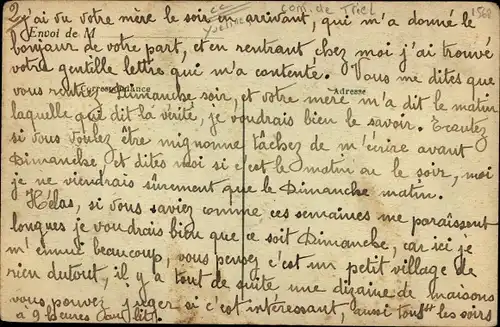 com. de Triel
Yvelines
1560
2 j'ai vu votre mère le soir en arrivant, qui m'a donné le
Envoi de M
bonjour de votre part, et en rentrant chez moi j'ai trouvé
votre gentille lettre qui m'a contenté. Vous me dites que
Correspondance
Adresse
vous rentrez dimanche soir, et votre mère m'a dit le matin
laquelle que dit la vérité, je voudrais bien le savoir. Ecoutez
si vous voulez être mignonne tâchez de m'écrire avant
Dimanche et dites moi si c'est le matin ou le soir, moi
je ne viendrais sûrement que le Dimanche matin.
Hélas, si vous saviez comme ces semaines me paraissent
longues je voudrais bien que ce soit Dimanche, car ici je
m'ennui beaucoup, vous pensez c'est un petit village de
rien du tout, il y a tout de suite une dizaine de maisons
vous pouvez juger si c'est intéressant, aussi tous les soirs
a 9 heures au lit.